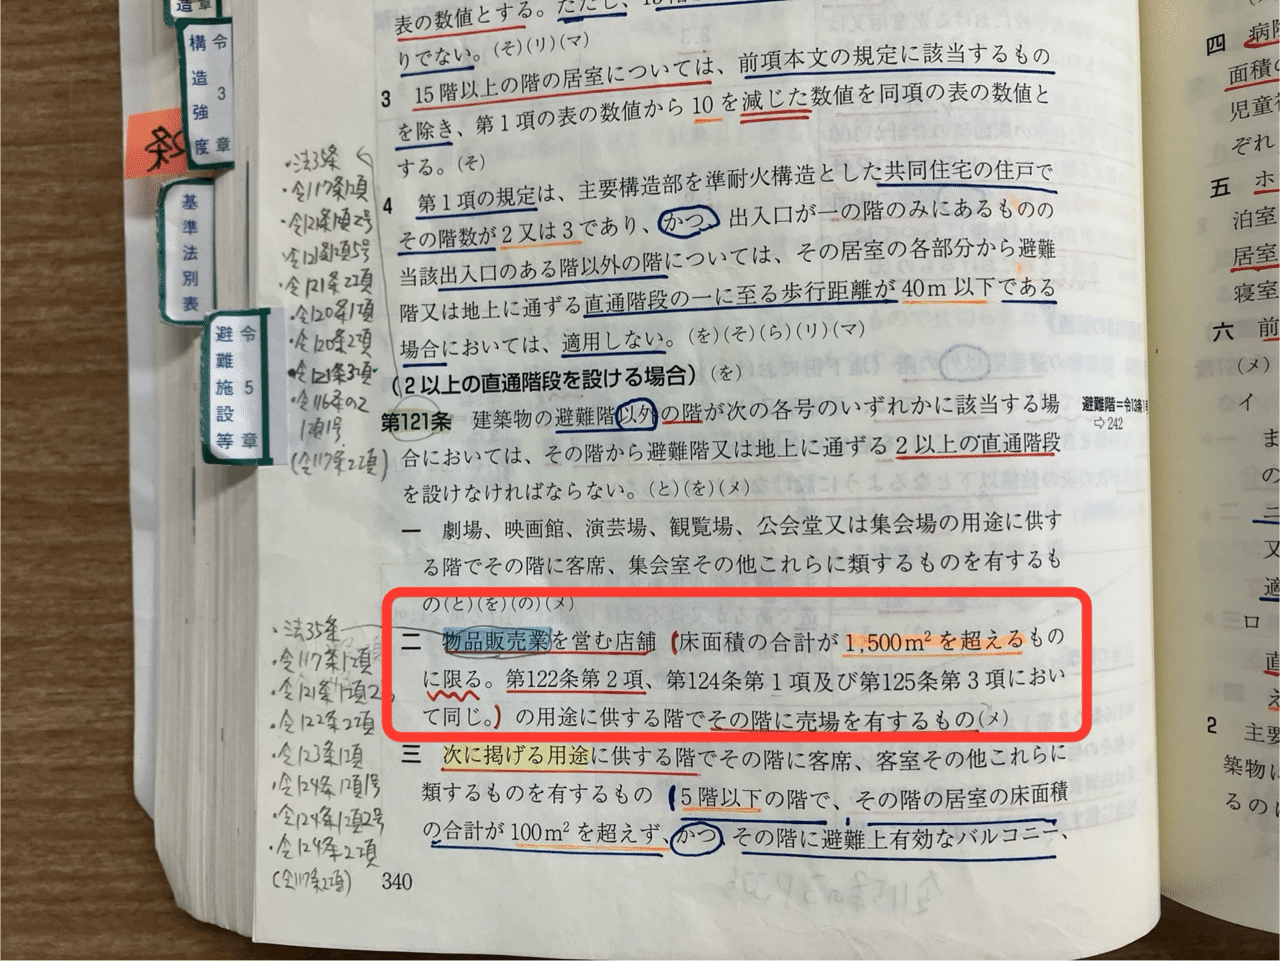 表の数値とする。ただし、15
りでない。(そ)(リ)(マ)
3 15階以上の階の居室については、前項本文の規定に該当するもの
を除き、第1項の表の数値から10を減じた数値を同項の表の数値と
する。(そ)
4 第1項の規定は、主要構造部を準耐火構造とした共同住宅の住戸で
その階数が2又は3であり、かつ、出入口が一の階のみにあるものの
当該出入口のある階以外の階については、その居室の各部分から避難
階又は地上に通ずる直通階段の一に至る歩行距離が40m以下である
場合においては、適用しない。(を)(そ)(ら)(リ)(マ)
(2以上の直通階段を設ける場合)(を)
第121条 建築物の避難階以外の階が次の各号のいずれかに該当する場
合においては、その階から避難階又は地上に通ずる2以上の直通階段
を設けなければならない。(と)(を)(メ)
一 劇場、映画館、演芸場、観覧場、公会堂又は集会場の用途に供す
る階でその階に客席、集会室その他これらに類するものを有するも
の(と)(を)(の)(メ)
二 物品販売業を営む店舗(床面積の合計が1,500m²を超えるもの
に限る。第122条第2項、第124条第1項及び第125条第3項におい
て同じ。)の用途に供する階でその階に売場を有するもの(メ)
三 次に掲げる用途に供する階でその階に客席、客室その他これらに
類するものを有するもの(5階以下の階で、その階の居室の床面積
の合計が100m²を超えず、かつ、その階に避難上有効なバルコニー、
340
避難階=令13条1
⇨242
造 章
構造強度 令3章
2条
基準法別表
避難施設等 令5章
・法35条
・令117条1項
・令121条1項2号
・令121条1項5号
・令121条2項
・令120条1項
・令120条2項
・令121条3項
・令116条の2
1項1号
(令117条2項)
・法35条
・令117条1項
・令121条1項2
・令122条2項
・令123条1項
・令124条1項1号
・令124条1項2号
・令124条2項
(令117条2項)
四 病院
面積の
児童
ぞれ
五 ホ
泊室
居室
寝室
六 前
(メ)
イ
ま
の
三
又
適
ロ
直
え
2 主要
築物に
るのは